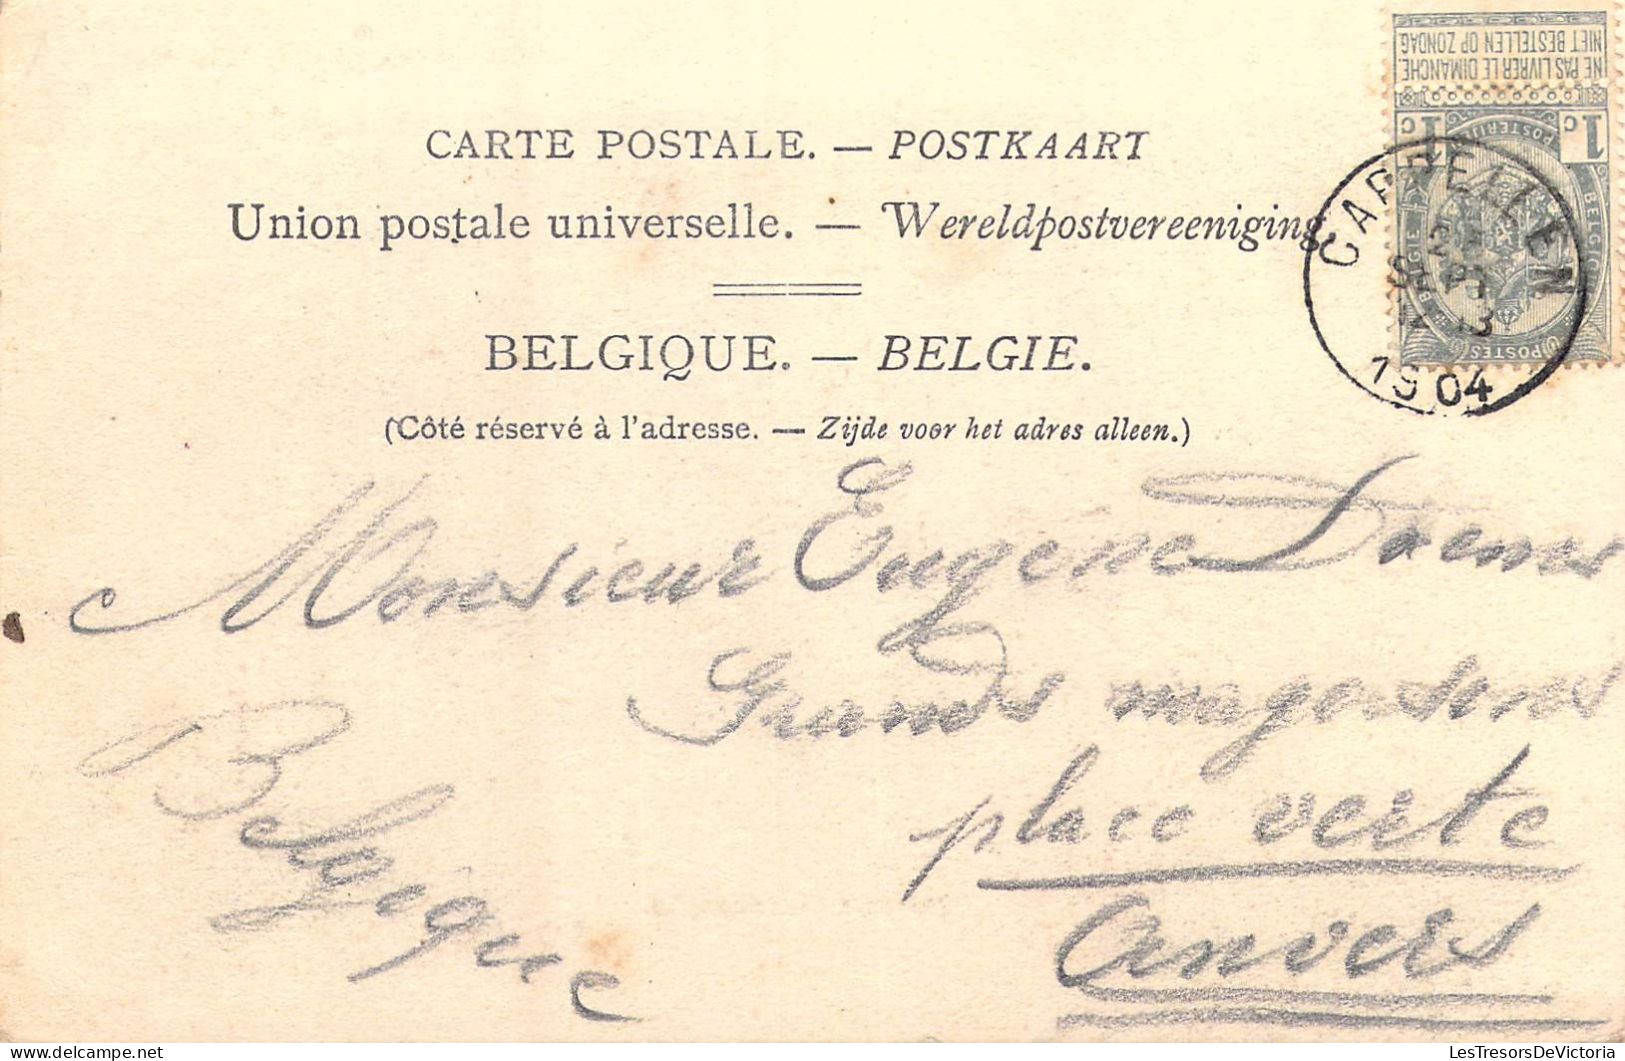 NIET BESTELLEN OP ZONDAG.
NE PAS LIVRER LE DIMANCHE.
1c 1c
POSTERIJEN
BELGIQUE BELGIE
POSTES
CAPPELLEN
1904
CARTE POSTALE. — POSTKAART
Union postale universelle. — Wereldpostvereeniging
BELGIQUE. — BELGIE.
(Côté réservé à l'adresse. — Zijde voor het adres alleen.)
Monsieur Eugène
Grands magasins
place verte
Anvers
Belgique
LesTresorsDeVictoria